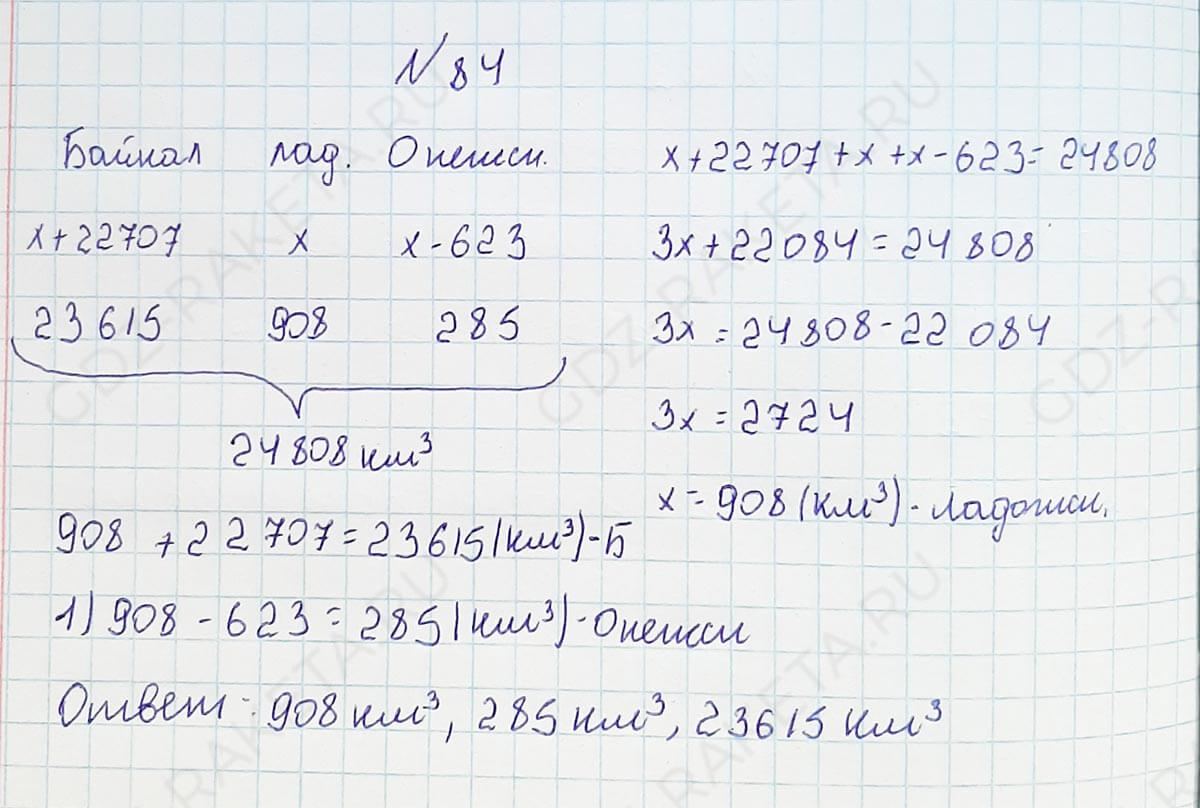 N 84
Байкал лад. Онежск.
x+22707 x x-623
23615 908 285
24808 км³
x+22707+x+x-623=24808
3x+22084=24808
3x=24808-22 084
3x=2724
x=908(км³)-Ладожск.
908+22707=23615(км³)-Б
1) 908-623=285(км³)-Онежск
Ответ: 908 км³, 285 км³, 23615 км³
GDZ-RAKETA.RU
GDZ-RAKETA.RU
GDZ-R
RAKETA.RU
RAKETA.RU